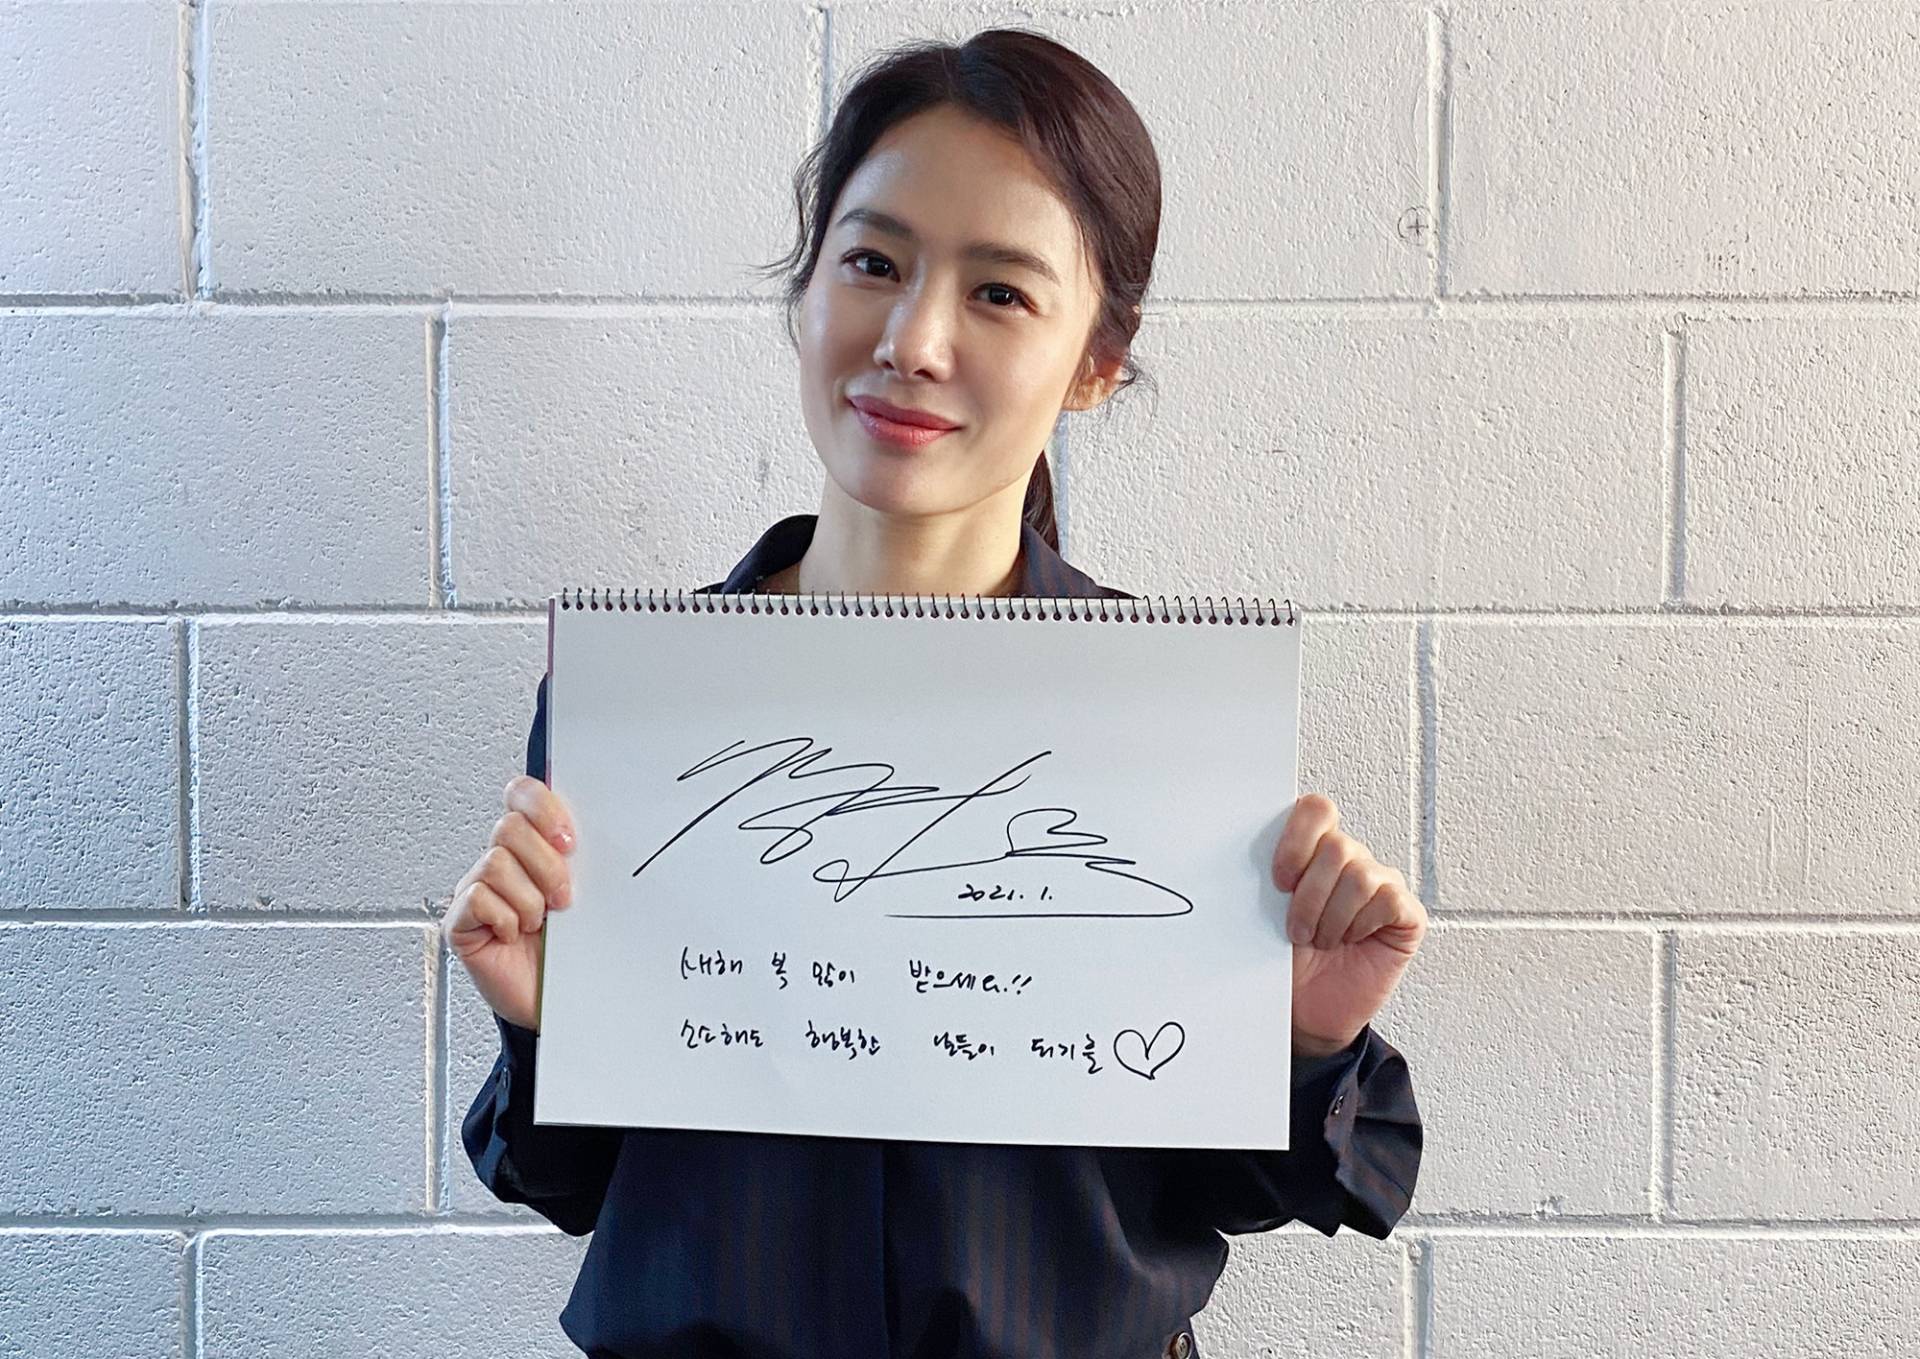 2021. 1.
새해 복 많이 받으세요!!
소소해도 행복한 날들이 되기를♡